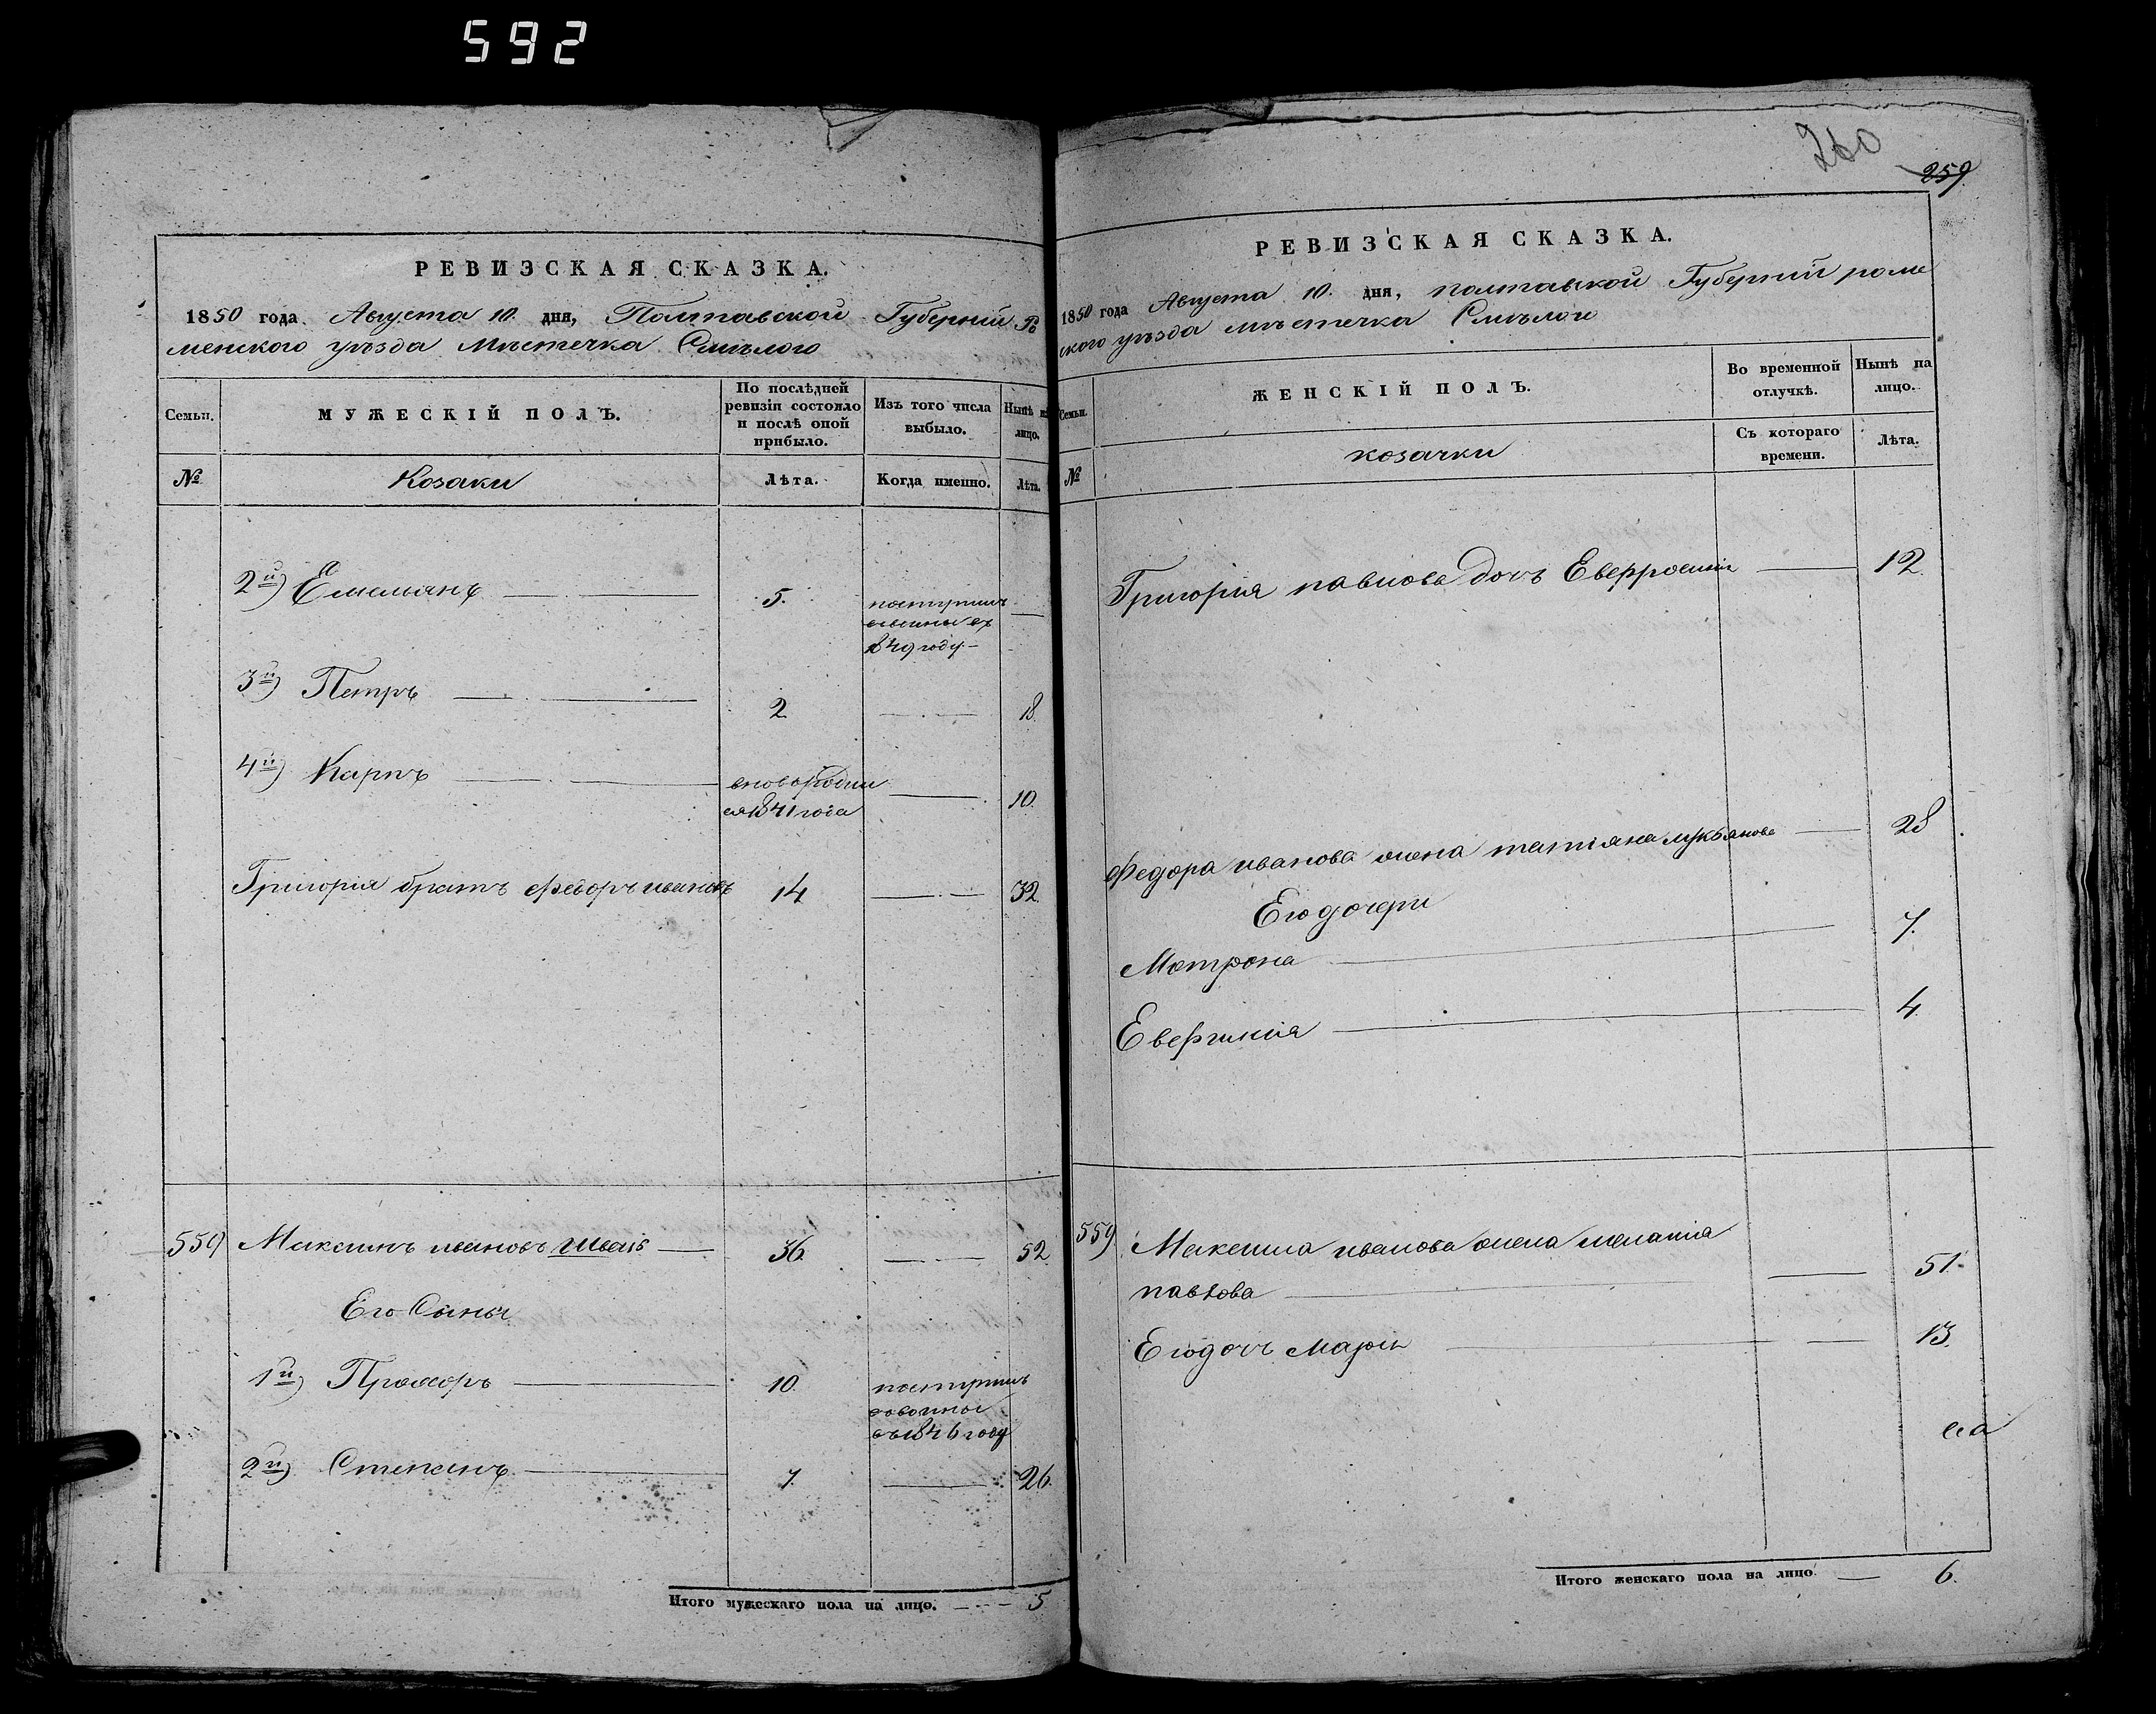 592
РЕВИЗСКАЯ СКАЗКА.
1850 года Августа 10. дня, Полтавской Губерніи Ро
менского уѣзда Мѣстечка Смѣлого
Семьи.
МУЖЕСКІЙ ПОЛЪ.
По послѣдней
ревизіи состояло
и послѣ оной
прибыло.
Изъ того числа
выбыло.
Нынѣ на
лицо.
№
Козаки
Лѣта.
Когда именно.
Лѣта.
2й) Емельянъ 5.
1849 году
3й) Петръ 2 18.
4й) Карпъ вновь родил 10.
ся 1841 года
Григорія братъ Федоръ ивановъ 14 32.
559 Максимъ ивановъ Шваiъ 36. 52
Его Сыны
1й) Прохоръ 10.
въ 1846 году
2й) Степанъ 7. 26.
Итого мужескаго пола на лицо. 5
260
259.
РЕВИЗСКАЯ СКАЗКА.
1850 года Августа 10. дня, полтавской Губерніи роме
ского уѣзда мѣстечка Смѣлои
Семьи.
ЖЕНСКІЙ ПОЛЪ.
Во временной
отлучкѣ.
Нынѣ на
лицо.
№
козачки
Съ котораго
времени.
Лѣта.
Григорія павлова дочь Евфросинія 12.
Федора иванова жена татіяна лукьянова 28
Его дочери
Мотрона 7.
Евфгинія 4.
559 Максима иванова жена меланія
павлова 51.
Его дочь Марія 13.
Итого женскаго пола на лицо 6.